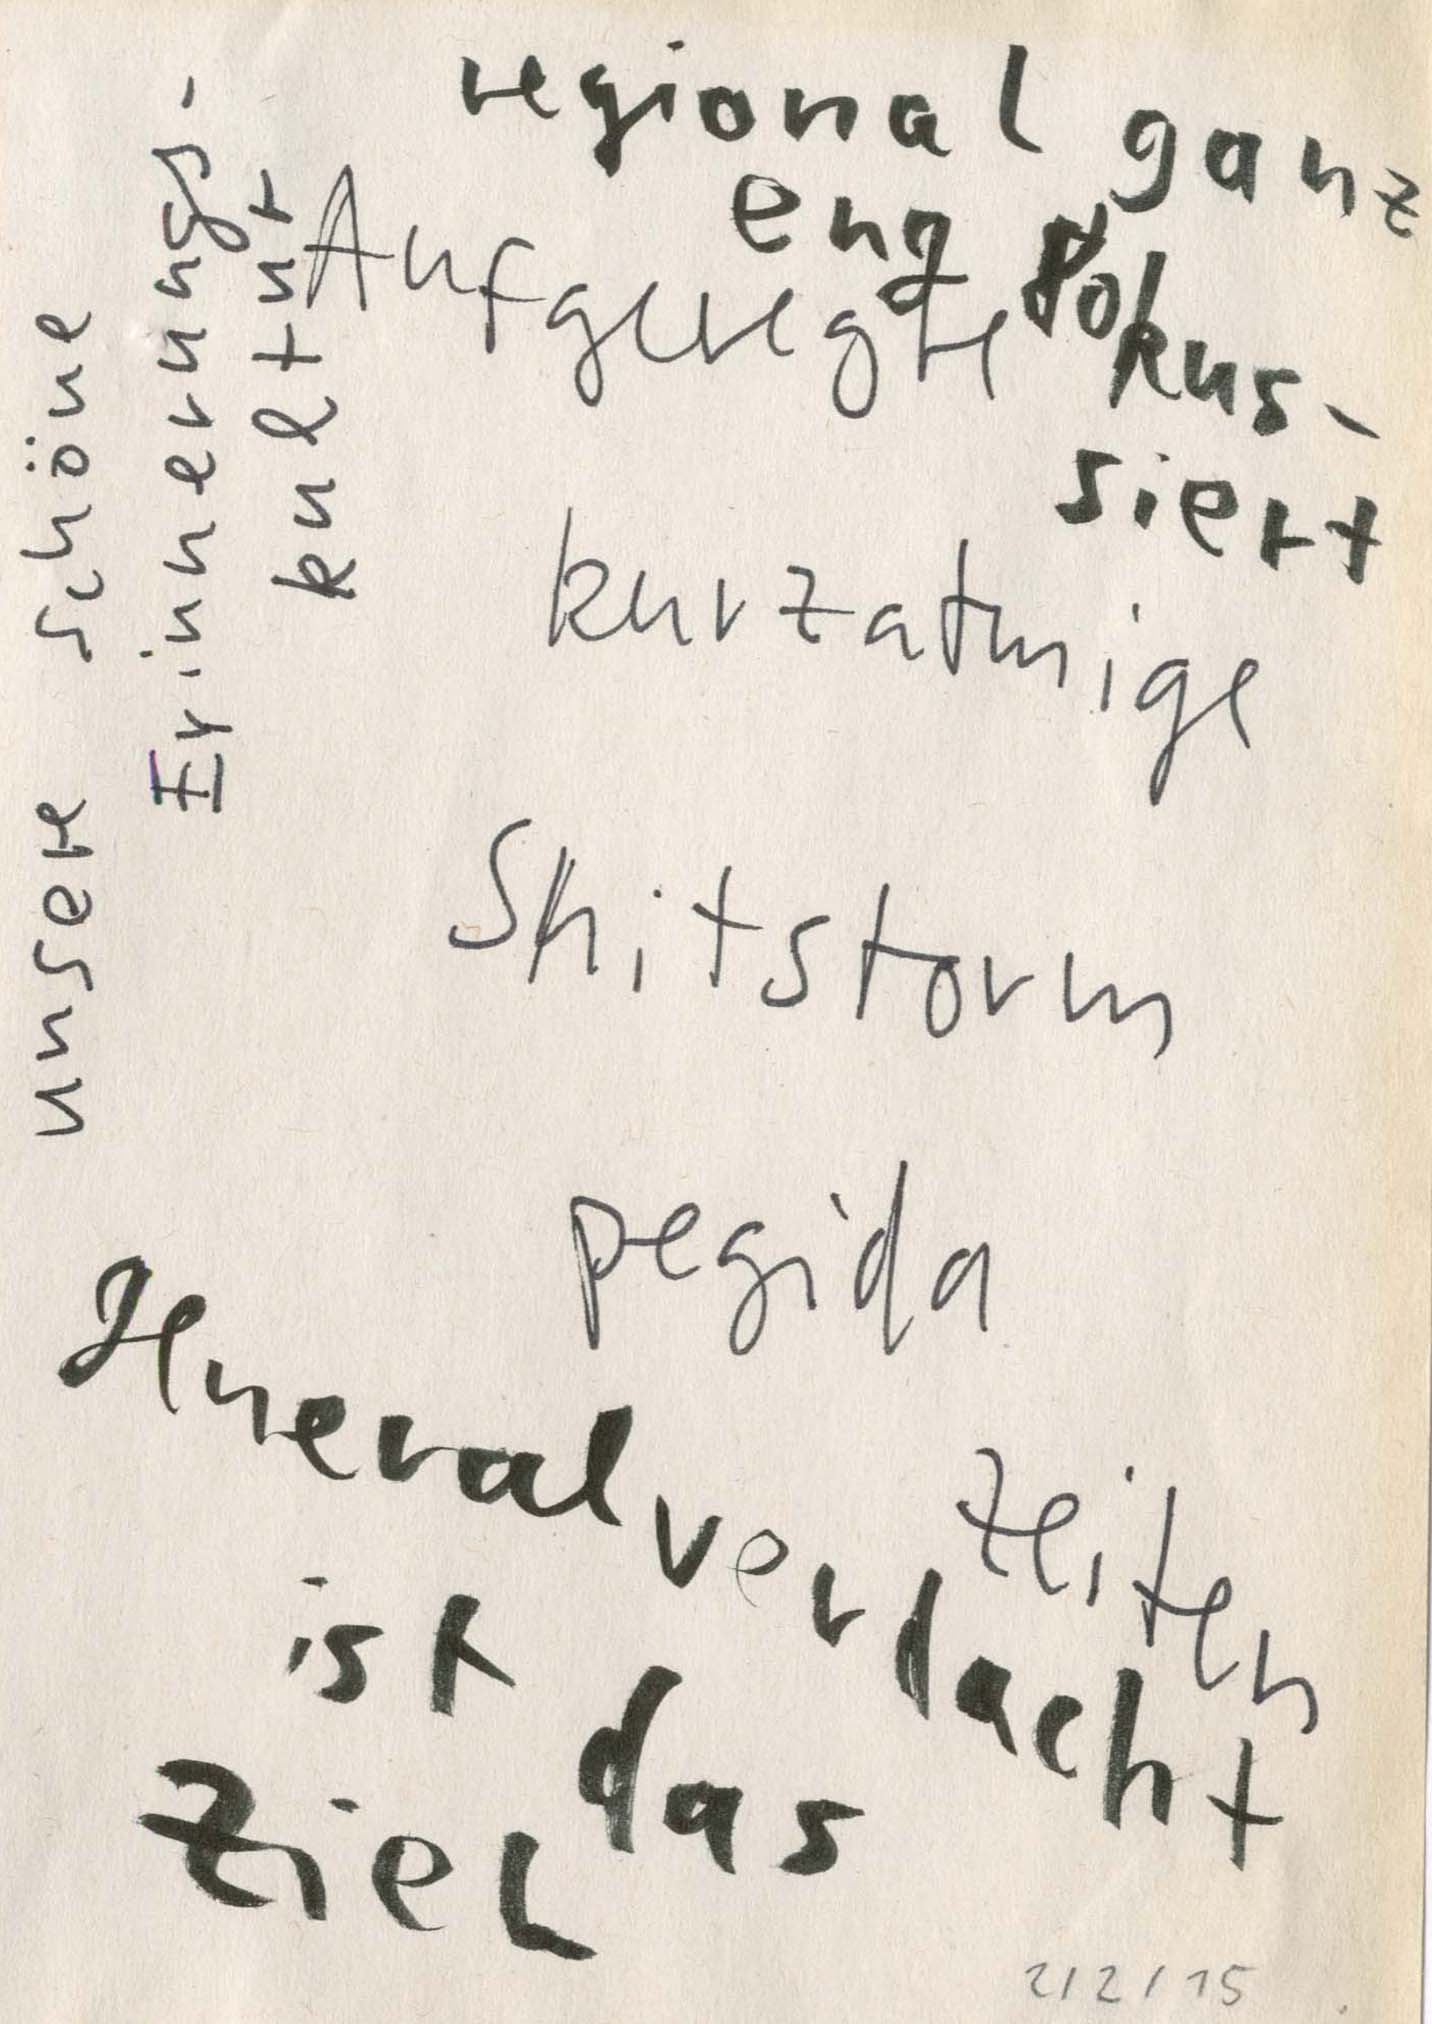 regional ganz
eng fokus-
siert
Aufgeregte
kurzatmige
Shitstorm
pegida
zeiten
unsere schöne
Erinnerungs-
kultur
Generalverdacht
ist das
Ziel
2/2/15